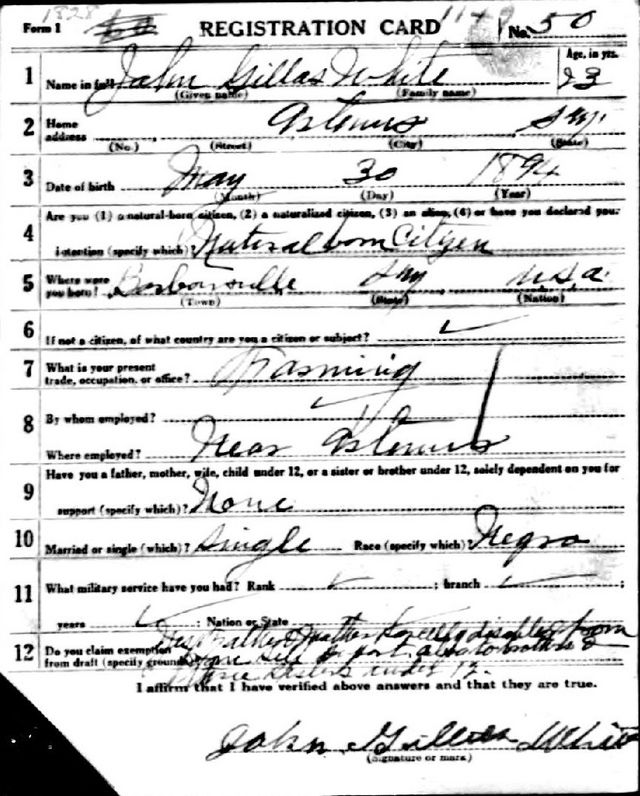 1828
Form 1 REGISTRATION CARD No. 50
1 Name in full John Gillas White Age, in yrs. 23
(Given name) (Family name)
2 Home address Artemus Ky.
(No.) (Street) (City) (State)
3 Date of birth May 30 1894
(Month) (Day) (Year)
4 Are you (1) a natural-born citizen, (2) a naturalized citizen, (3) an alien, (4) or have you declared your
intention (specify which)? Natural born Citizen
5 Where were you born? Barbourville Ky U.S.A.
(Town) (State) (Nation)
6 If not a citizen, of what country are you a citizen or subject? ✓
7 What is your present trade, occupation, or office? Farming
8 By whom employed? ✓
Where employed? Near Artemus
9 Have you a father, mother, wife, child under 12, or a sister or brother under 12, solely dependent on you for
support (specify which)? None
10 Married or single (which)? Single Race (specify which)? Negro
11 What military service have you had? Rank ✓ ; branch ✓ ;
years ✓ ; Nation or State
12 Do you claim exemption from draft (specify grounds)? Yes Father & Mother disabled from
support also brothers &
sisters under 12.
I affirm that I have verified above answers and that they are true.
John Gillas White
(Signature or mark)